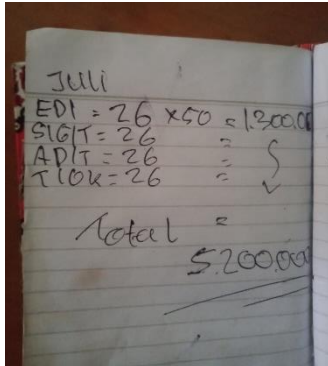 JULI
EDI = 26 x 50 = 1.300.00
SIGIT = 26 =
ADIT = 26 =
TIOK = 26 =
Total =
5.200.000